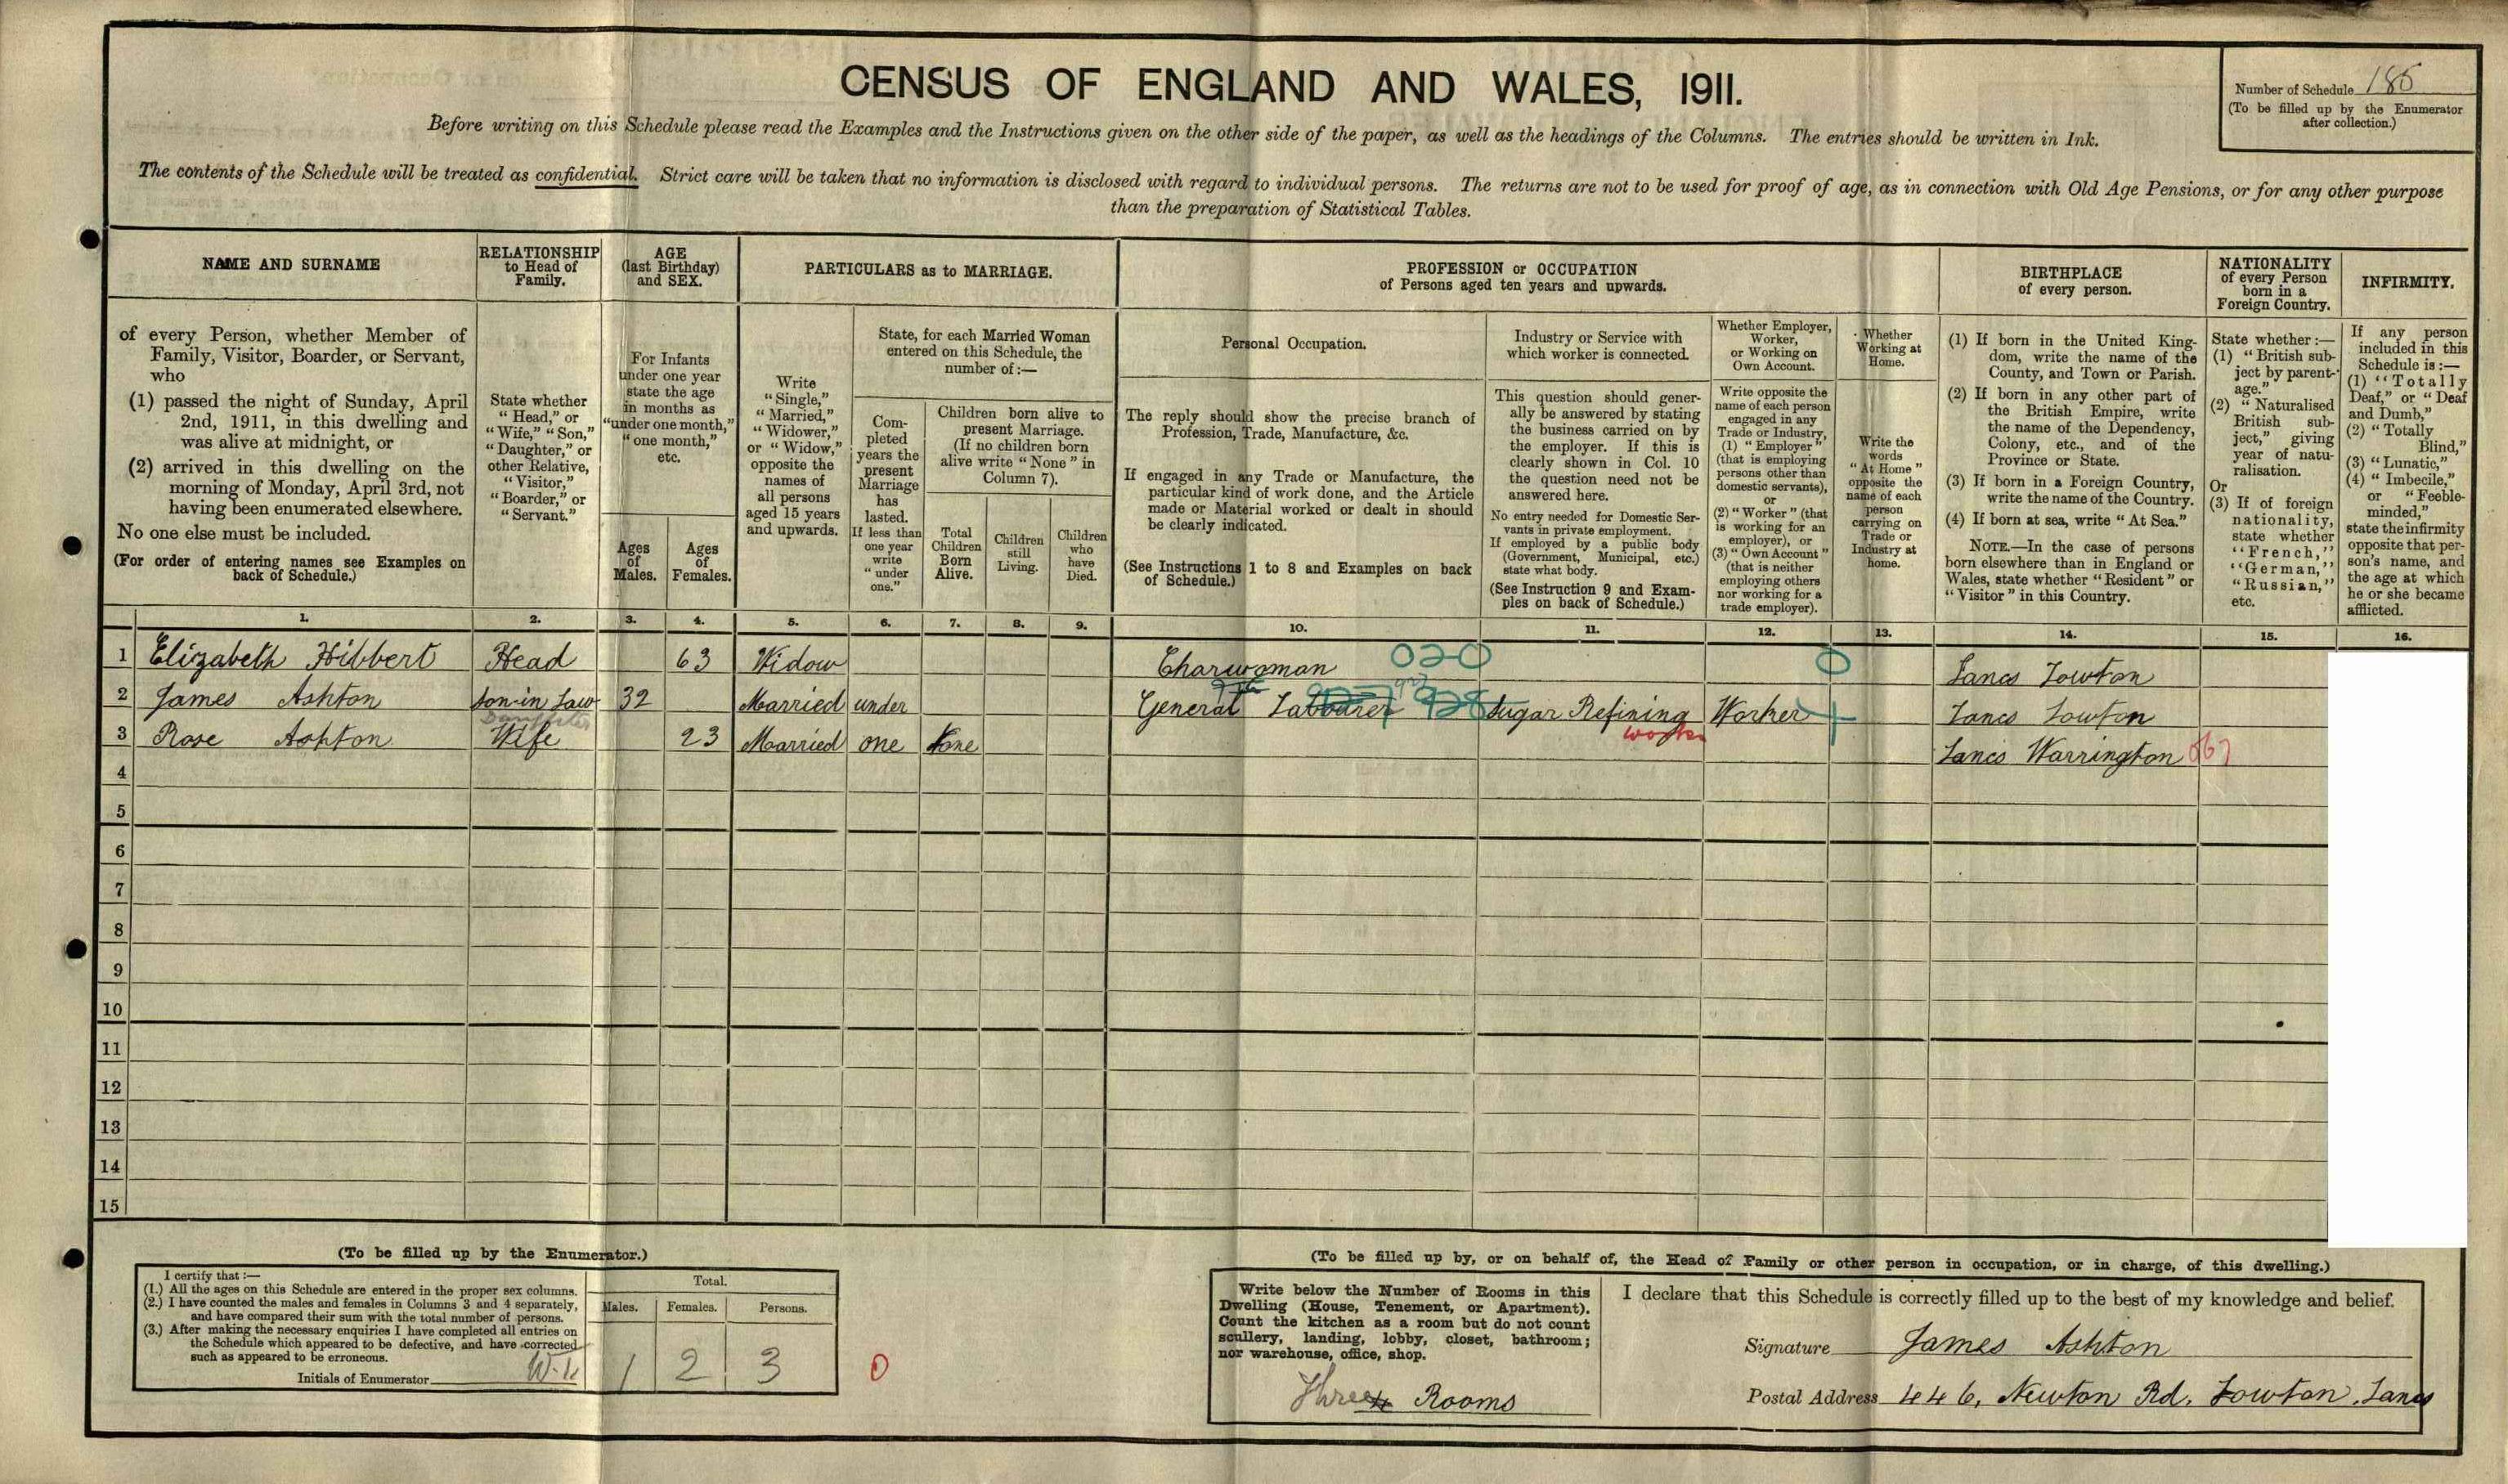 CENSUS OF ENGLAND AND WALES, 1911.
Number of Schedule 186
(To be filled up by the Enumerator
after collection.)
Before writing on this Schedule please read the Examples and the Instructions given on the other side of the paper, as well as the headings of the Columns. The entries should be written in Ink.
The contents of the Schedule will be treated as confidential. Strict care will be taken that no information is disclosed with regard to individual persons. The returns are not to be used for proof of age, as in connection with Old Age Pensions, or for any other purpose
than the preparation of Statistical Tables.
NAME AND SURNAME
of every Person, whether Member of
Family, Visitor, Boarder, or Servant,
who
(1) passed the night of Sunday, April
2nd, 1911, in this dwelling and
was alive at midnight, or
(2) arrived in this dwelling on the
morning of Monday, April 3rd, not
having been enumerated elsewhere.
No one else must be included.
(For order of entering names see Examples on
back of Schedule.)
RELATIONSHIP
to Head of
Family.
State whether
"Head," or
"Wife," "Son,"
"Daughter," or
other Relative,
"Visitor,"
"Boarder," or
"Servant."
AGE
(last Birthday)
and SEX.
For Infants
under one year
state the age
in months as
"under one month,"
"one month,"
etc.
Ages
of
Males.
Ages
of
Females.
PARTICULARS as to MARRIAGE.
Write
"Single,"
"Married,"
"Widower,"
or "Widow,"
opposite the
names of
all persons
aged 15 years
and upwards.
State, for each Married Woman
entered on this Schedule, the
number of:—
Com-
pleted
years the
present
Marriage
has
lasted.
If less than
one year
write
"under
one."
Children born alive to
present Marriage.
(If no children born
alive write "None" in
Column 7).
Total
Children
Born
Alive.
Children
still
Living.
Children
who
have
Died.
PROFESSION or OCCUPATION
of Persons aged ten years and upwards.
Personal Occupation.
The reply should show the precise branch of
Profession, Trade, Manufacture, &c.
If engaged in any Trade or Manufacture, the
particular kind of work done, and the Article
made or Material worked or dealt in should
be clearly indicated.
(See Instructions 1 to 8 and Examples on back
of Schedule.)
Industry or Service with
which worker is connected.
This question should gener-
ally be answered by stating
the business carried on by
the employer. If this is
clearly shown in Col. 10
the question need not be
answered here.
No entry needed for Domestic Ser-
vants in private employment.
If employed by a public body
(Government, Municipal, etc.)
state what body.
(See Instruction 9 and Exam-
ples on back of Schedule.)
Whether Employer,
Worker,
or Working on
Own Account.
Write opposite the
name of each person
engaged in any
Trade or Industry,
(1) "Employer"
(that is employing
persons other than
domestic servants),
or
(2) "Worker" (that
is working for an
employer), or
(3) "Own Account"
(that is neither
employing others
nor working for a
trade employer).
Whether
Working at
Home.
Write the
words
"At Home"
opposite the
name of each
person
carrying on
Trade or
Industry at
home.
BIRTHPLACE
of every person.
(1) If born in the United King-
dom, write the name of the
County, and Town or Parish.
(2) If born in any other part of
the British Empire, write
the name of the Dependency,
Colony, etc., and of the
Province or State.
(3) If born in a Foreign Country,
write the name of the Country.
(4) If born at sea, write "At Sea."
NOTE.—In the case of persons
born elsewhere than in England or
Wales, state whether "Resident" or
"Visitor" in this Country.
NATIONALITY
of every Person
born in a
Foreign Country.
State whether:—
(1) "British sub-
ject by parent-
age."
(2) "Naturalised
British sub-
ject," giving
year of natu-
ralisation.
Or
(3) If of foreign
nationality,
state whether
"French,"
"German,"
"Russian,"
etc.
INFIRMITY.
If any person
included in this
Schedule is:—
(1) "Totally
Deaf," or "Deaf
and Dumb,"
(2) "Totally
Blind,"
(3) "Lunatic,"
(4) "Imbecile,"
or "Feeble-
minded,"
state the infirmity
opposite that per-
son's name, and
the age at which
he or she became
afflicted.
1. 2. 3. 4. 5. 6. 7. 8. 9. 10. 11. 12. 13. 14. 15. 16.
1 Elizabeth Hibbert Head 63 Widow Charwoman 020 0 Lancs Lowton
2 James Ashton Son-in Law 32 Married under General Labourer 928 Sugar Refining Worker + Lancs Lowton
Daughter works
3 Rose Ashton Wife 23 Married one None Lancs Warrington 067
4
5
6
7
8
9
10
11
12
13
14
15
(To be filled up by the Enumerator.)
I certify that:—
(1.) All the ages on this Schedule are entered in the proper sex columns.
(2.) I have counted the males and females in Columns 3 and 4 separately,
and have compared their sum with the total number of persons.
(3.) After making the necessary enquiries I have completed all entries on
the Schedule which appeared to be defective, and have corrected
such as appeared to be erroneous.
Initials of Enumerator
Total.
Males. Females. Persons.
1 2 3
0
(To be filled up by, or on behalf of, the Head of Family or other person in occupation, or in charge, of this dwelling.)
Write below the Number of Rooms in this
Dwelling (House, Tenement, or Apartment).
Count the kitchen as a room but do not count
scullery, landing, lobby, closet, bathroom;
nor warehouse, office, shop.
Three Rooms
I declare that this Schedule is correctly filled up to the best of my knowledge and belief.
Signature James Ashton
Postal Address 446, Newton Rd. Lowton. Lancs